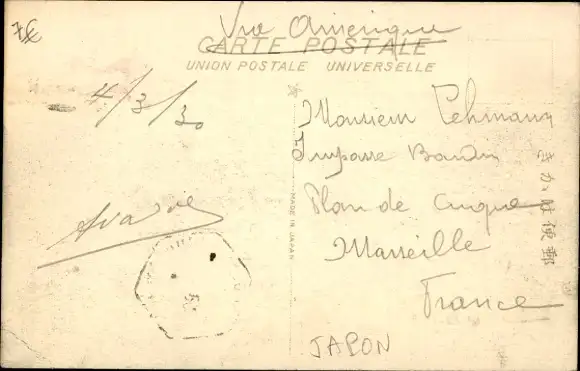 7€
Via Amérique
CARTE POSTALE
UNION POSTALE UNIVERSELLE
4/3/30
Monsieur Lehmann
Impasse
Plan de
Marseille
France
MADE IN JAPAN
きかは便郵
JAPON